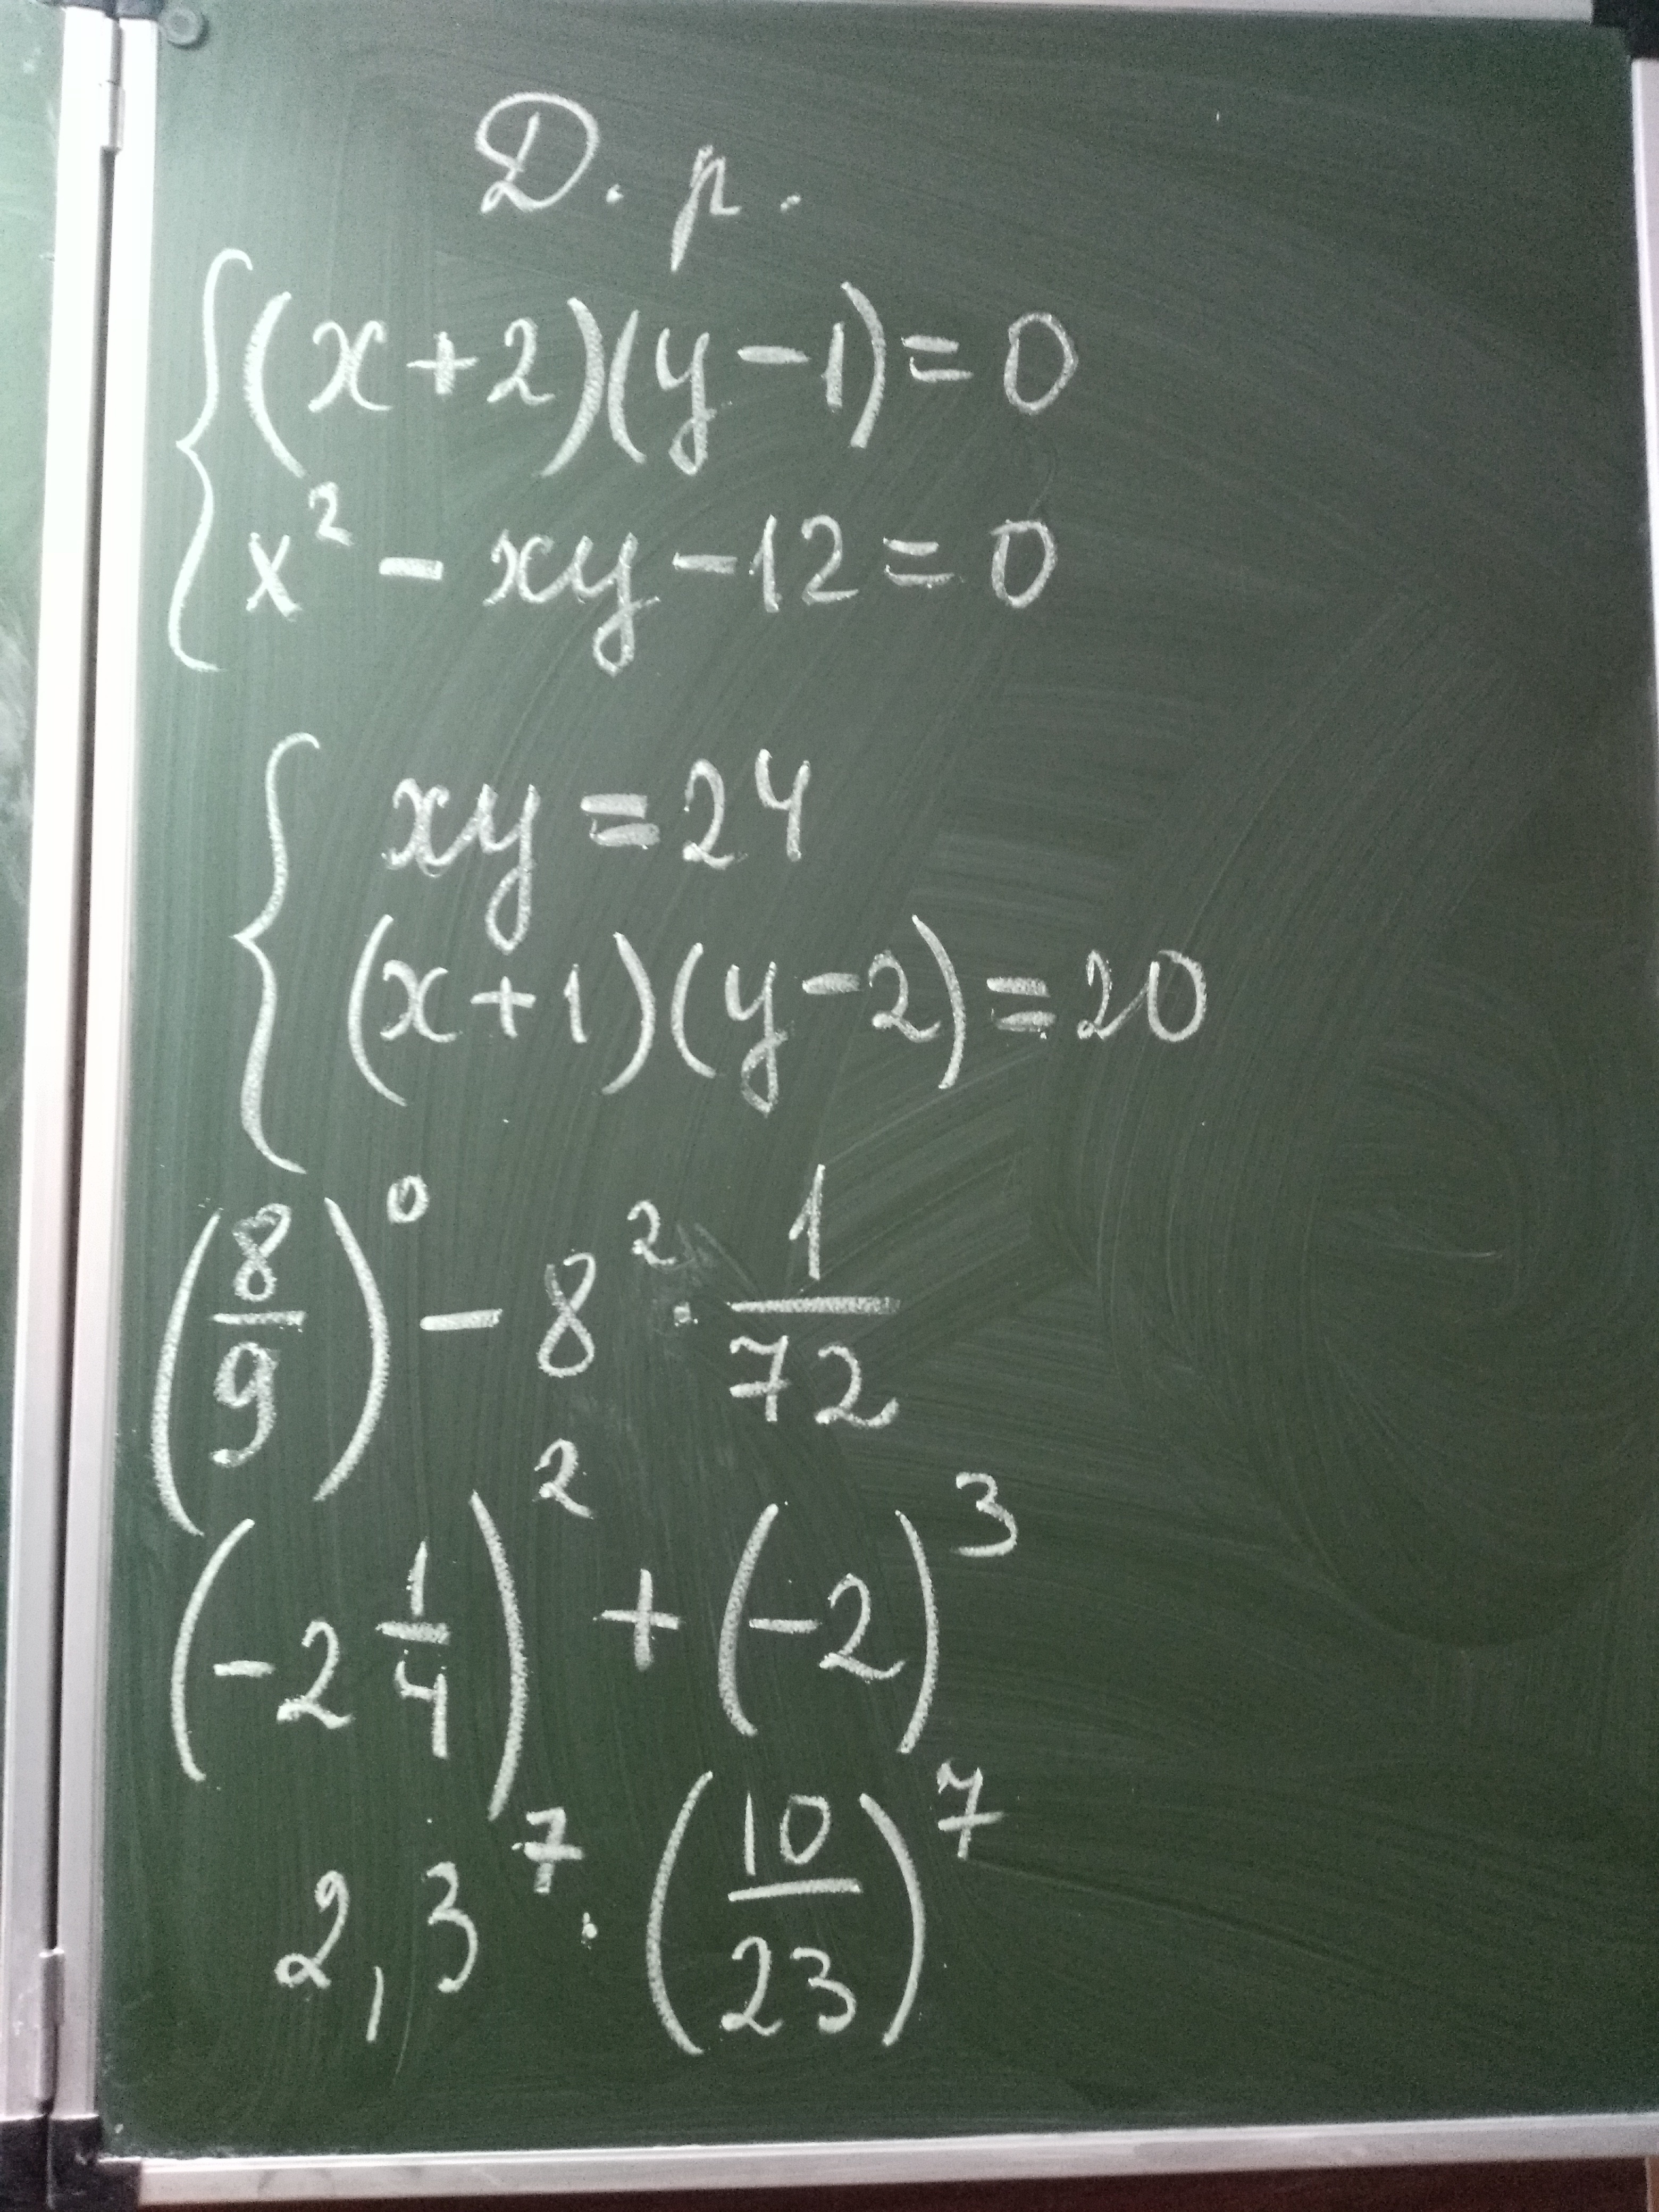 Д. р.
{ (x+2)(y-1)=0
x² - xy - 12 = 0
{ xy = 24
(x+1)(y-2)=20
(8/9)⁰ - 8² · 1/72
(-2 1/4)² + (-2)³
2,3⁷ · (10/23)⁷